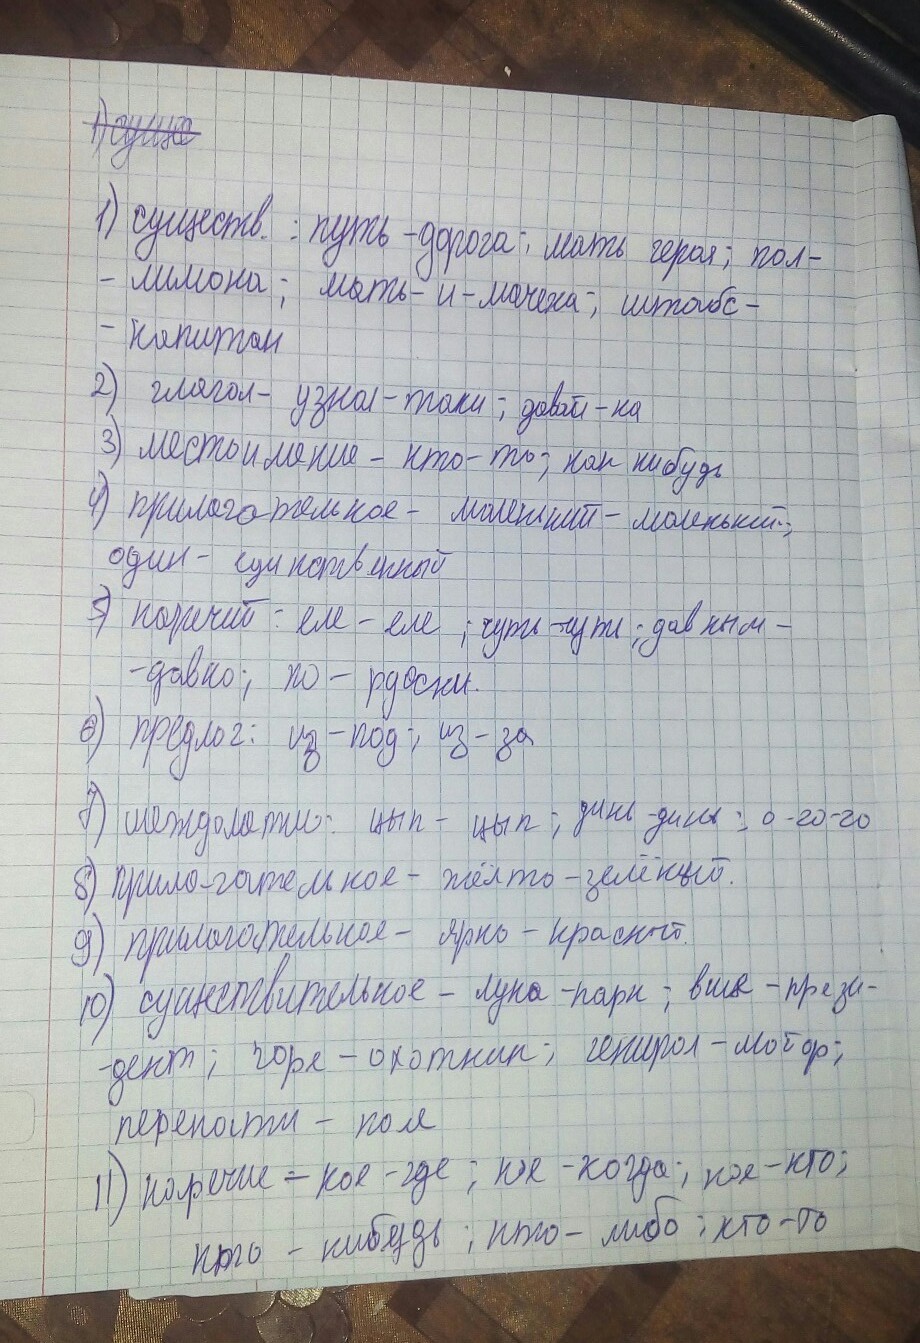 1) существ. : путь -дорога; мать героя; пол-
- лимона; мать-и-мачеха; штабс-
- капитан
2) глагол- узнал-таки; давай-ка
3) местоимение - кто-то; как нибудь
4) прилагательное- маленький-маленький;
один- единственный
5) наречий : еле - еле ; чуть-чуть; давным-
-давно; по -
6) предлог: из-под; из-за
7) междометия: цып- цып ; динь-динь ; о-го-го
8) прилагательное- жёлто-зелёный.
9) прилагательное- ярко-красный.
10) существительное - луна-парк ; вице -прези-
-дент; горе-охотник; генерал-майор;
перекати- поле
11) наречие - кое-где ; кое-когда; кое-кто;
кто - нибудь ; кто- либо ; кто-то